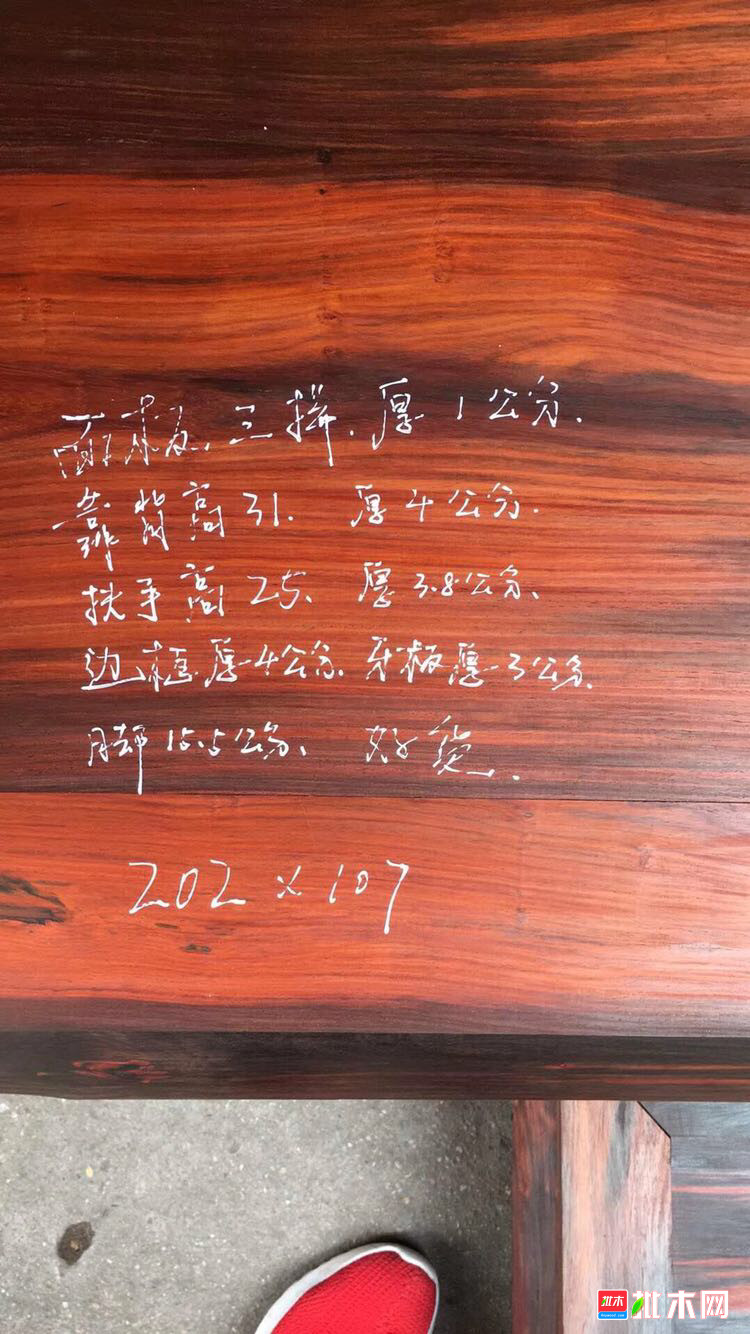 面板、三拼、厚1公分.
靠背高31. 厚4公分.
扶手高25、厚3.8公分、
边框厚4公分、牙板厚3公分.
脚15.5公分、好货.
202×107
批木
批木网